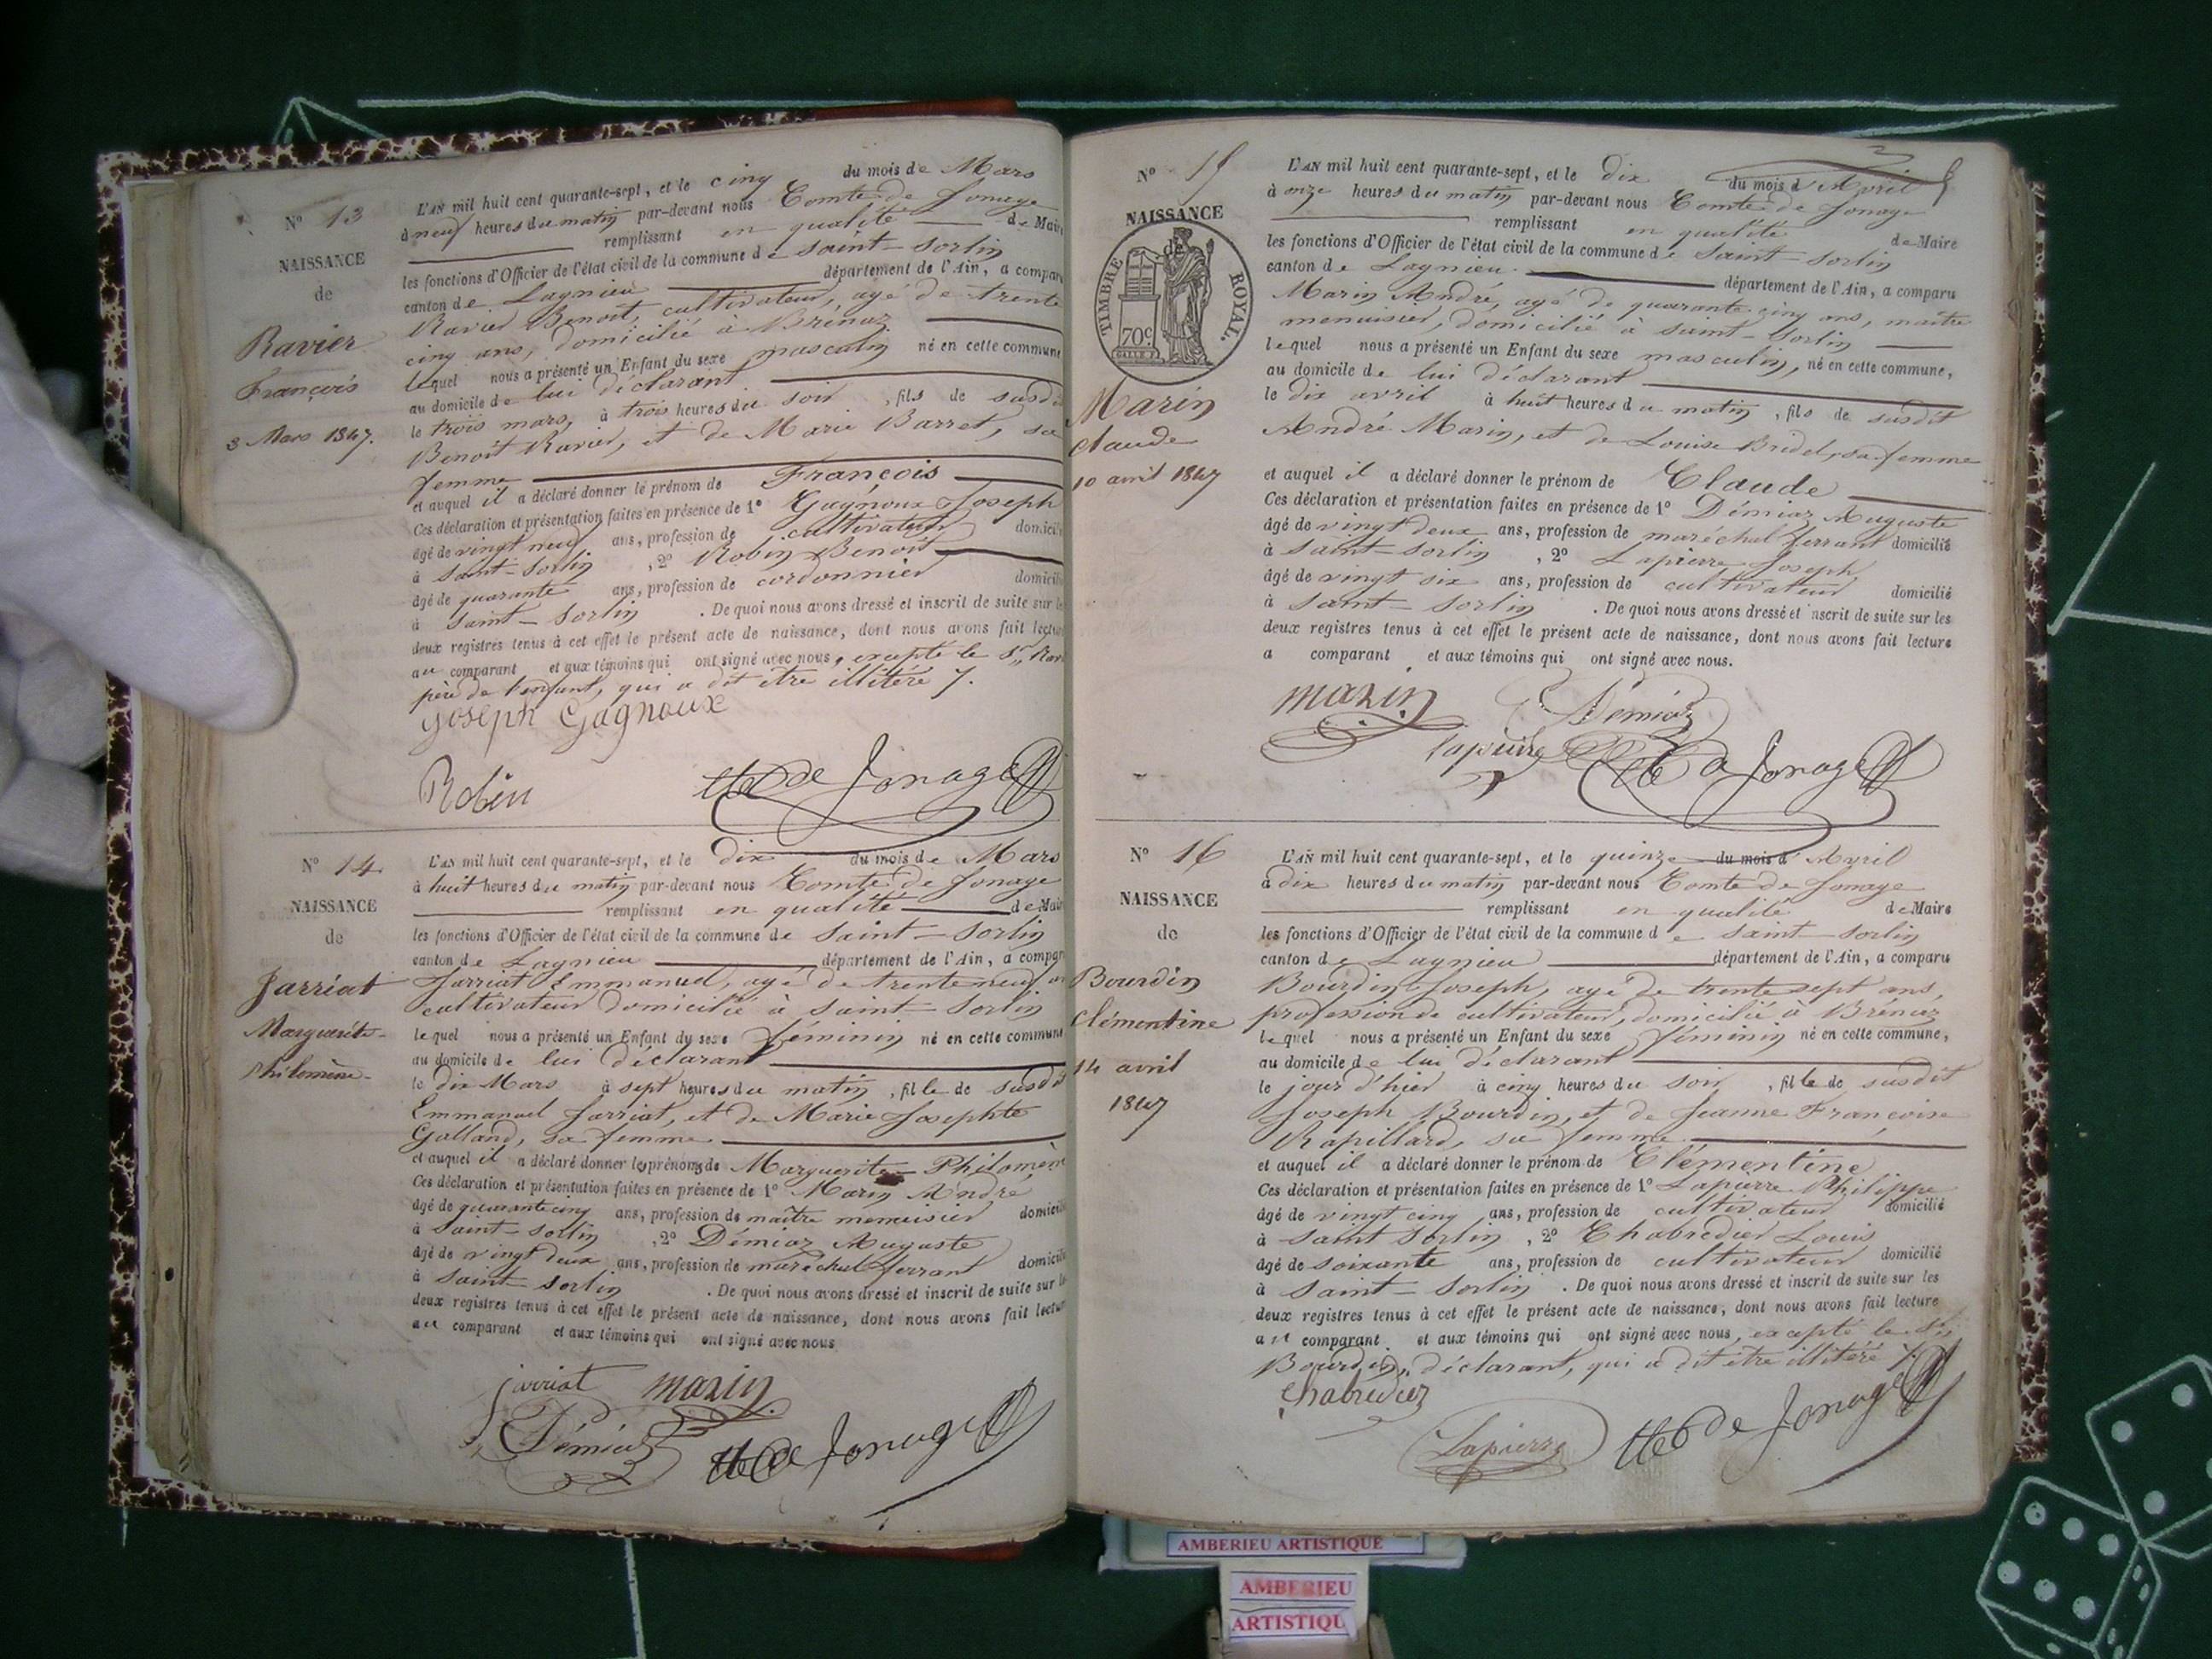 N° 13
NAISSANCE
de
Ravier
François
3 Mars 1847.
L'AN mil huit cent quarante-sept, et le cinq du mois de Mars
à neuf heures du matin par-devant nous Comte de Jonage
remplissant en qualité de Maire
les fonctions d'Officier de l'état civil de la commune de Saint-Sorlin
canton de Lagnieu département de l'Ain, a comparu
Ravier Benoit, cultivateur, agé de trente
cinq ans, domicilié à Brénaz
lequel nous a présenté un Enfant du sexe masculin né en cette commune
au domicile de lui déclarant
le trois mars, à trois heures du soir, fils de susdit
Benoît Ravier, et de Marie Barret, sa
femme
et auquel il a déclaré donner le prénom de François
Ces déclaration et présentation faites en présence de 1° Gagnoux Joseph
âgé de vingt neuf ans, profession de cultivateur domicilié
à Saint-Sorlin, 2° Robin Benoit
âgé de quarante ans, profession de cordonnier domicilié
à Saint-Sorlin. De quoi nous avons dressé et inscrit de suite sur les
deux registres tenus à cet effet le présent acte de naissance, dont nous avons fait lecture
au comparant et aux témoins qui ont signé avec nous, excepté le Sr Rav
père de l'enfant, qui a dit être illitéré
Joseph Gagnoux
Robin
Cte de Jonage
N° 14
NAISSANCE
de
Jarriat
Marguerite-
Philomène-
L'AN mil huit cent quarante-sept, et le dix du mois de Mars
à huit heures du matin par-devant nous Comte de Jonage
remplissant en qualité de Maire
les fonctions d'Officier de l'état civil de la commune de Saint-Sorlin
canton de Lagnieu département de l'Ain, a comparu
Jarriat Emmanuel, agé de trente neuf an
cultivateur domicilié à Saint-Sorlin
lequel nous a présenté un Enfant du sexe féminin né en cette commune
au domicile de lui déclarant
le dix Mars à sept heures du matin, fille de susdit
Emmanuel Jarriat, et de Marie Josephte
Galland, sa femme
et auquel il a déclaré donner les prénoms de Marguerite-Philomène
Ces déclaration et présentation faites en présence de 1° Marin André
âgé de quarante cinq ans, profession de maître menuisier domicilié
à Saint-Sorlin, 2° Démiaz Auguste
âgé de vingt deux ans, profession de maréchal ferrant domicilié
à Saint-Sorlin. De quoi nous avons dressé et inscrit de suite sur les
deux registres tenus à cet effet le présent acte de naissance, dont nous avons fait lecture
au comparant et aux témoins qui ont signé avec nous
jarriat marin
Démiaz Cte de Jonage
N° 15
NAISSANCE
de
TIMBRE ROYAL.
70c.
Marin
Claude
10 avril 1847
L'AN mil huit cent quarante-sept, et le dix du mois d'Avril
à onze heures du matin par-devant nous Comte de Jonage
remplissant en qualité de Maire
les fonctions d'Officier de l'état civil de la commune de Saint-Sorlin
canton de Lagnieu département de l'Ain, a comparu
Marin André, agé de quarante cinq ans, maître
menuisier, domicilié à saint-Sorlin
lequel nous a présenté un Enfant du sexe masculin, né en cette commune,
au domicile de lui déclarant
le dix avril à huit heures du matin, fils de susdit
André Marin, et de Louise Bridel, sa femme
et auquel il a déclaré donner le prénom de Claude
Ces déclaration et présentation faites en présence de 1° Démiaz Auguste
âgé de vingt deux ans, profession de maréchal ferrant domicilié
à Saint-Sorlin, 2° Lapierre Joseph
âgé de vingt six ans, profession de cultivateur domicilié
à Saint-Sorlin. De quoi nous avons dressé et inscrit de suite sur les
deux registres tenus à cet effet le présent acte de naissance, dont nous avons fait lecture
a comparant et aux témoins qui ont signé avec nous.
marin Démiaz
lapierre Cte de Jonage
N° 16
NAISSANCE
de
Bourdin
Clémentine
14 avril
1847
L'AN mil huit cent quarante-sept, et le quinze du mois d'Avril
à dix heures du matin par-devant nous Comte de Jonage
remplissant en qualité de Maire
les fonctions d'Officier de l'état civil de la commune de Saint-Sorlin
canton de Lagnieu département de l'Ain, a comparu
Bourdin Joseph, agé de trente sept ans,
profession de cultivateur, domicilié à Brénaz
lequel nous a présenté un Enfant du sexe féminin né en cette commune,
au domicile de lui déclarant
le jour d'hier à cinq heures du soir, fille de susdit
Joseph Bourdin, et de Jeanne Françoise
Rapillard, sa femme
et auquel il a déclaré donner le prénom de Clémentine
Ces déclaration et présentation faites en présence de 1° Lapierre Philippe
âgé de vingt cinq ans, profession de cultivateur domicilié
à Saint Sorlin, 2° Chabredier Louis
âgé de soixante ans, profession de cultivateur domicilié
à Saint-Sorlin. De quoi nous avons dressé et inscrit de suite sur les
deux registres tenus à cet effet le présent acte de naissance, dont nous avons fait lecture
au comparant et aux témoins qui ont signé avec nous, excepté le Sr
Bourdin, déclarant, qui a dit être illitéré
Chabredier
Lapierre Cte de Jonage
AMBERIEU ARTISTIQUE
AMBERIEU
ARTISTIQU